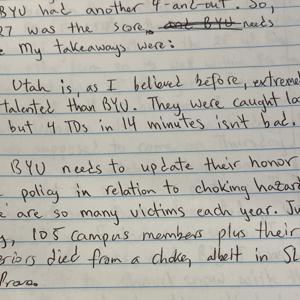 BYU had another 4-and-out. So,
27 was the score. and BYU needs
My takeaways were:
Utah is, as I believed before, extreme
talented than BYU. They were caught la
but 4 TDs in 14 minutes isn't bad.
BYU needs to update their honor
policy in relation to choking hazard
e are so many victims each year. Ju
y, 105 campus members plus their
eriors died from a choke, albeit in SL
Provo.